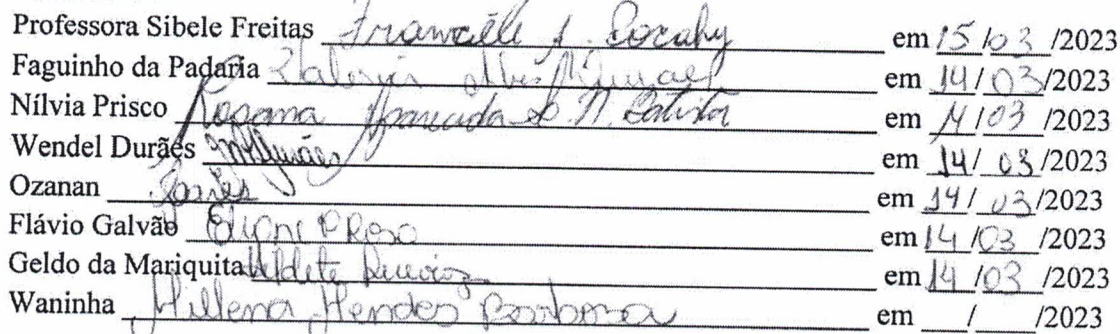 Professora Sibele Freitas Francielle J. Cocahy em 15/03/2023
Faguinho da Padaria em 14/03/2023
Nílvia Prisco Rosana Aparecida S. N. Batista em 14/03/2023
Wendel Durães em 14/03/2023
Ozanan em 14/03/2023
Flávio Galvão em 14/03/2023
Geldo da Mariquita em 14/03/2023
Waninha Millena Mendes Barbosa em / /2023